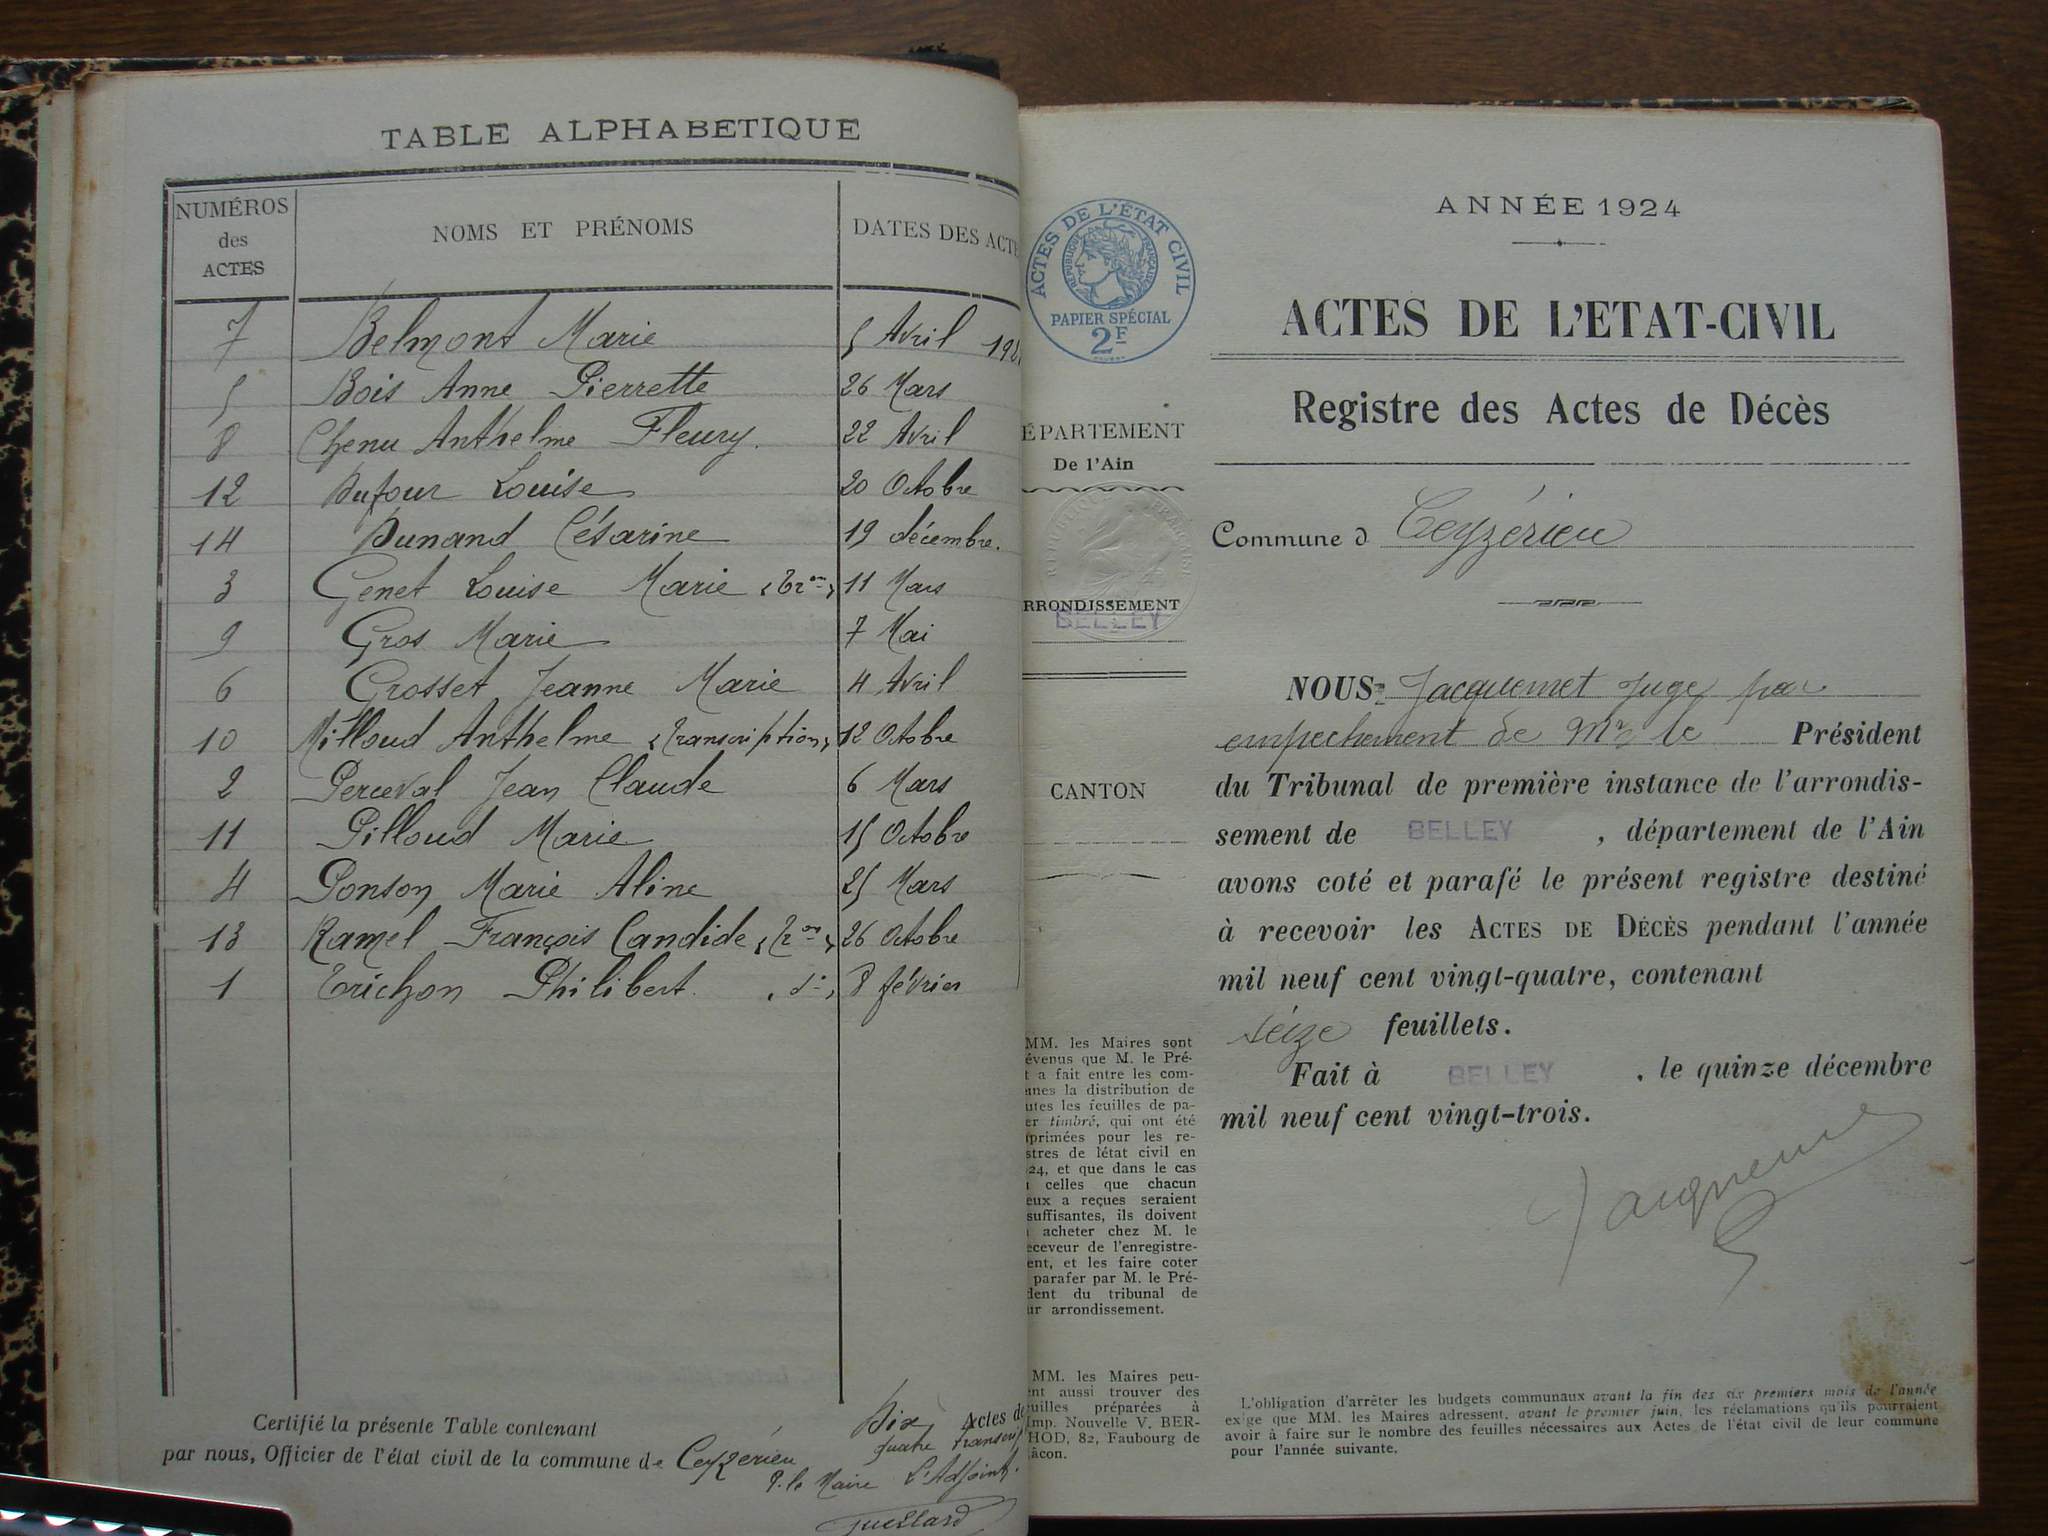 TABLE ALPHABETIQUE
NUMÉROS des ACTES NOMS ET PRÉNOMS DATES DES ACTE
7 Belmont Marie 5 Avril
5 Bois Anne Pierrette 26 Mars
8 Chenu Anthelme Fleury. 22 Avril
12 Dufour Louise 20 Octobre
14 Dunand Césarine 19 décembre.
3 Genet Louise Marie (Tr^on) 11 Mars
9 Gros Marie 7 Mai
6 Grosset Jeanne Marie 4 Avril
10 Milloud Anthelme (Transcription) 12 Octobre
2 Perceval Jean Claude 6 Mars
11 Pilloud Marie 15 Octobre
4 Ponson Marie Aline 25 Mars
13 Ramel François Candide (Tr^on) 26 Octobre
1 Trichon Philibert. 8 février
Certifié la présente Table contenant Dix Actes de
quatre transcrip
par nous, Officier de l'état civil de la commune de Ceyzérieu
P. le Maire L'Adjoint.
ACTES DE L'ÉTAT CIVIL
RÉPUBLIQUE FRANÇAISE
PAPIER SPÉCIAL
2F
ÉPARTEMENT
De l'Ain
RRONDISSEMENT
BELLEY
CANTON
MM. les Maires sont
évenus que M. le Pré-
t a fait entre les com-
unes la distribution de
utes les feuilles de pa-
er timbré, qui ont été
primées pour les re-
stres de létat civil en
24, et que dans le cas
celles que chacun
eux a reçues seraient
suffisantes, ils doivent
acheter chez M. le
eceveur de l'enregistre-
ent, et les faire coter
parafer par M. le Pré-
dent du tribunal de
ur arrondissement.
MM. les Maires peu-
nt aussi trouver des
uilles préparées à
Imp. Nouvelle V. BER-
HOD, 82, Faubourg de
âcon.
ANNÉE 1924
ACTES DE L'ETAT-CIVIL
Registre des Actes de Décès
Commune d Ceyzérieu
NOUS Jacquemet Juge par
empechement de Mr le Président
du Tribunal de première instance de l'arrondis-
sement de BELLEY, département de l'Ain
avons coté et parafé le présent registre destiné
à recevoir les ACTES DE DÉCÈS pendant l'année
mil neuf cent vingt-quatre, contenant
seize feuillets.
Fait à BELLEY, le quinze décembre
mil neuf cent vingt-trois.
L'obligation d'arrêter les budgets communaux avant la fin des six premiers mois de l'année
exige que MM. les Maires adressent, avant le premier juin, les réclamations qu'ils pourraient
avoir à faire sur le nombre des feuilles nécessaires aux Actes de l'état civil de leur commune
pour l'année suivante.